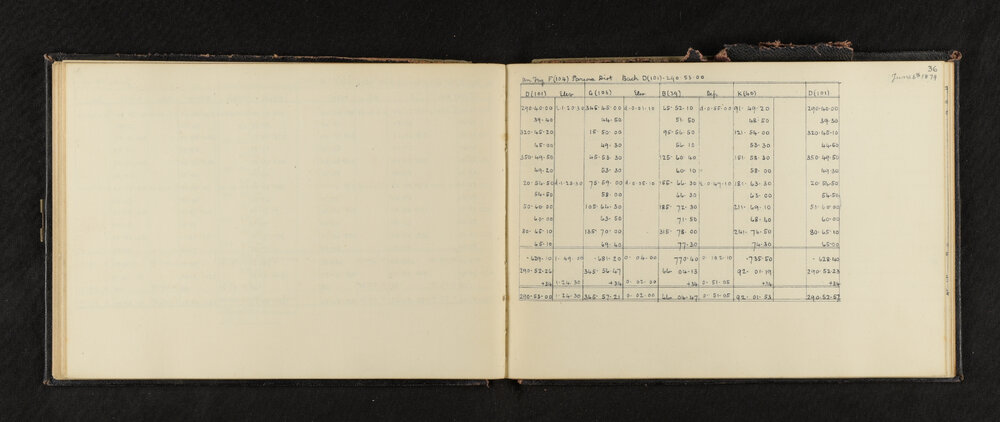 36
June 5th 1879
On Trig F(104) Parure Dist Back D(101)-290 53.00
D(101) Elev G(103) Elev B(39) Dep K(40) D(101)
290.40.00 e.1.20.30 345.45.00 d.0.01.10 65.52.10 d.0.55.00 91.49.20 290.40.00
39.40 44.50 51.50 48.50 39.50
320.45.20 15 50.00 95.54.50 121.54.00 320.45.10
45.00 49.30 54 10 53.30 44.50
350.49.50 45.53.30 125.60.40 151.58.30 350.49.50
49.20 53.30 60.10 58.00 49.30
20.54.50 d.1.28.30 75.59.00 d.0.05.10 155.66.30 e.0.49.10 181.63.30 20.54.50
54.50 58.00 66.30 63.00 54.50
50.60.00 105.64.30 185.72.30 211.69.10 51.60.00
60.00 63.50 71.50 68.40 60.00
80.65.10 135.70.00 315.78.00 241.74.50 80.65.10
65.10 69.40 77.30 74.30 65.00
-629.10 1.49.00 -681.20 0.04.00 770.40 0.102.10 -735.50 -628.40
290.52.26 345.56.47 66 04.13 92.01.19 290.52.23
+34 1.24.30 +34 0.02.00 +34 0.51.05 +34 +34
290.53.00 1.24.30 345.57.21 0.02.00 66 04.47 0.51.05 92.01.53 290.52.57